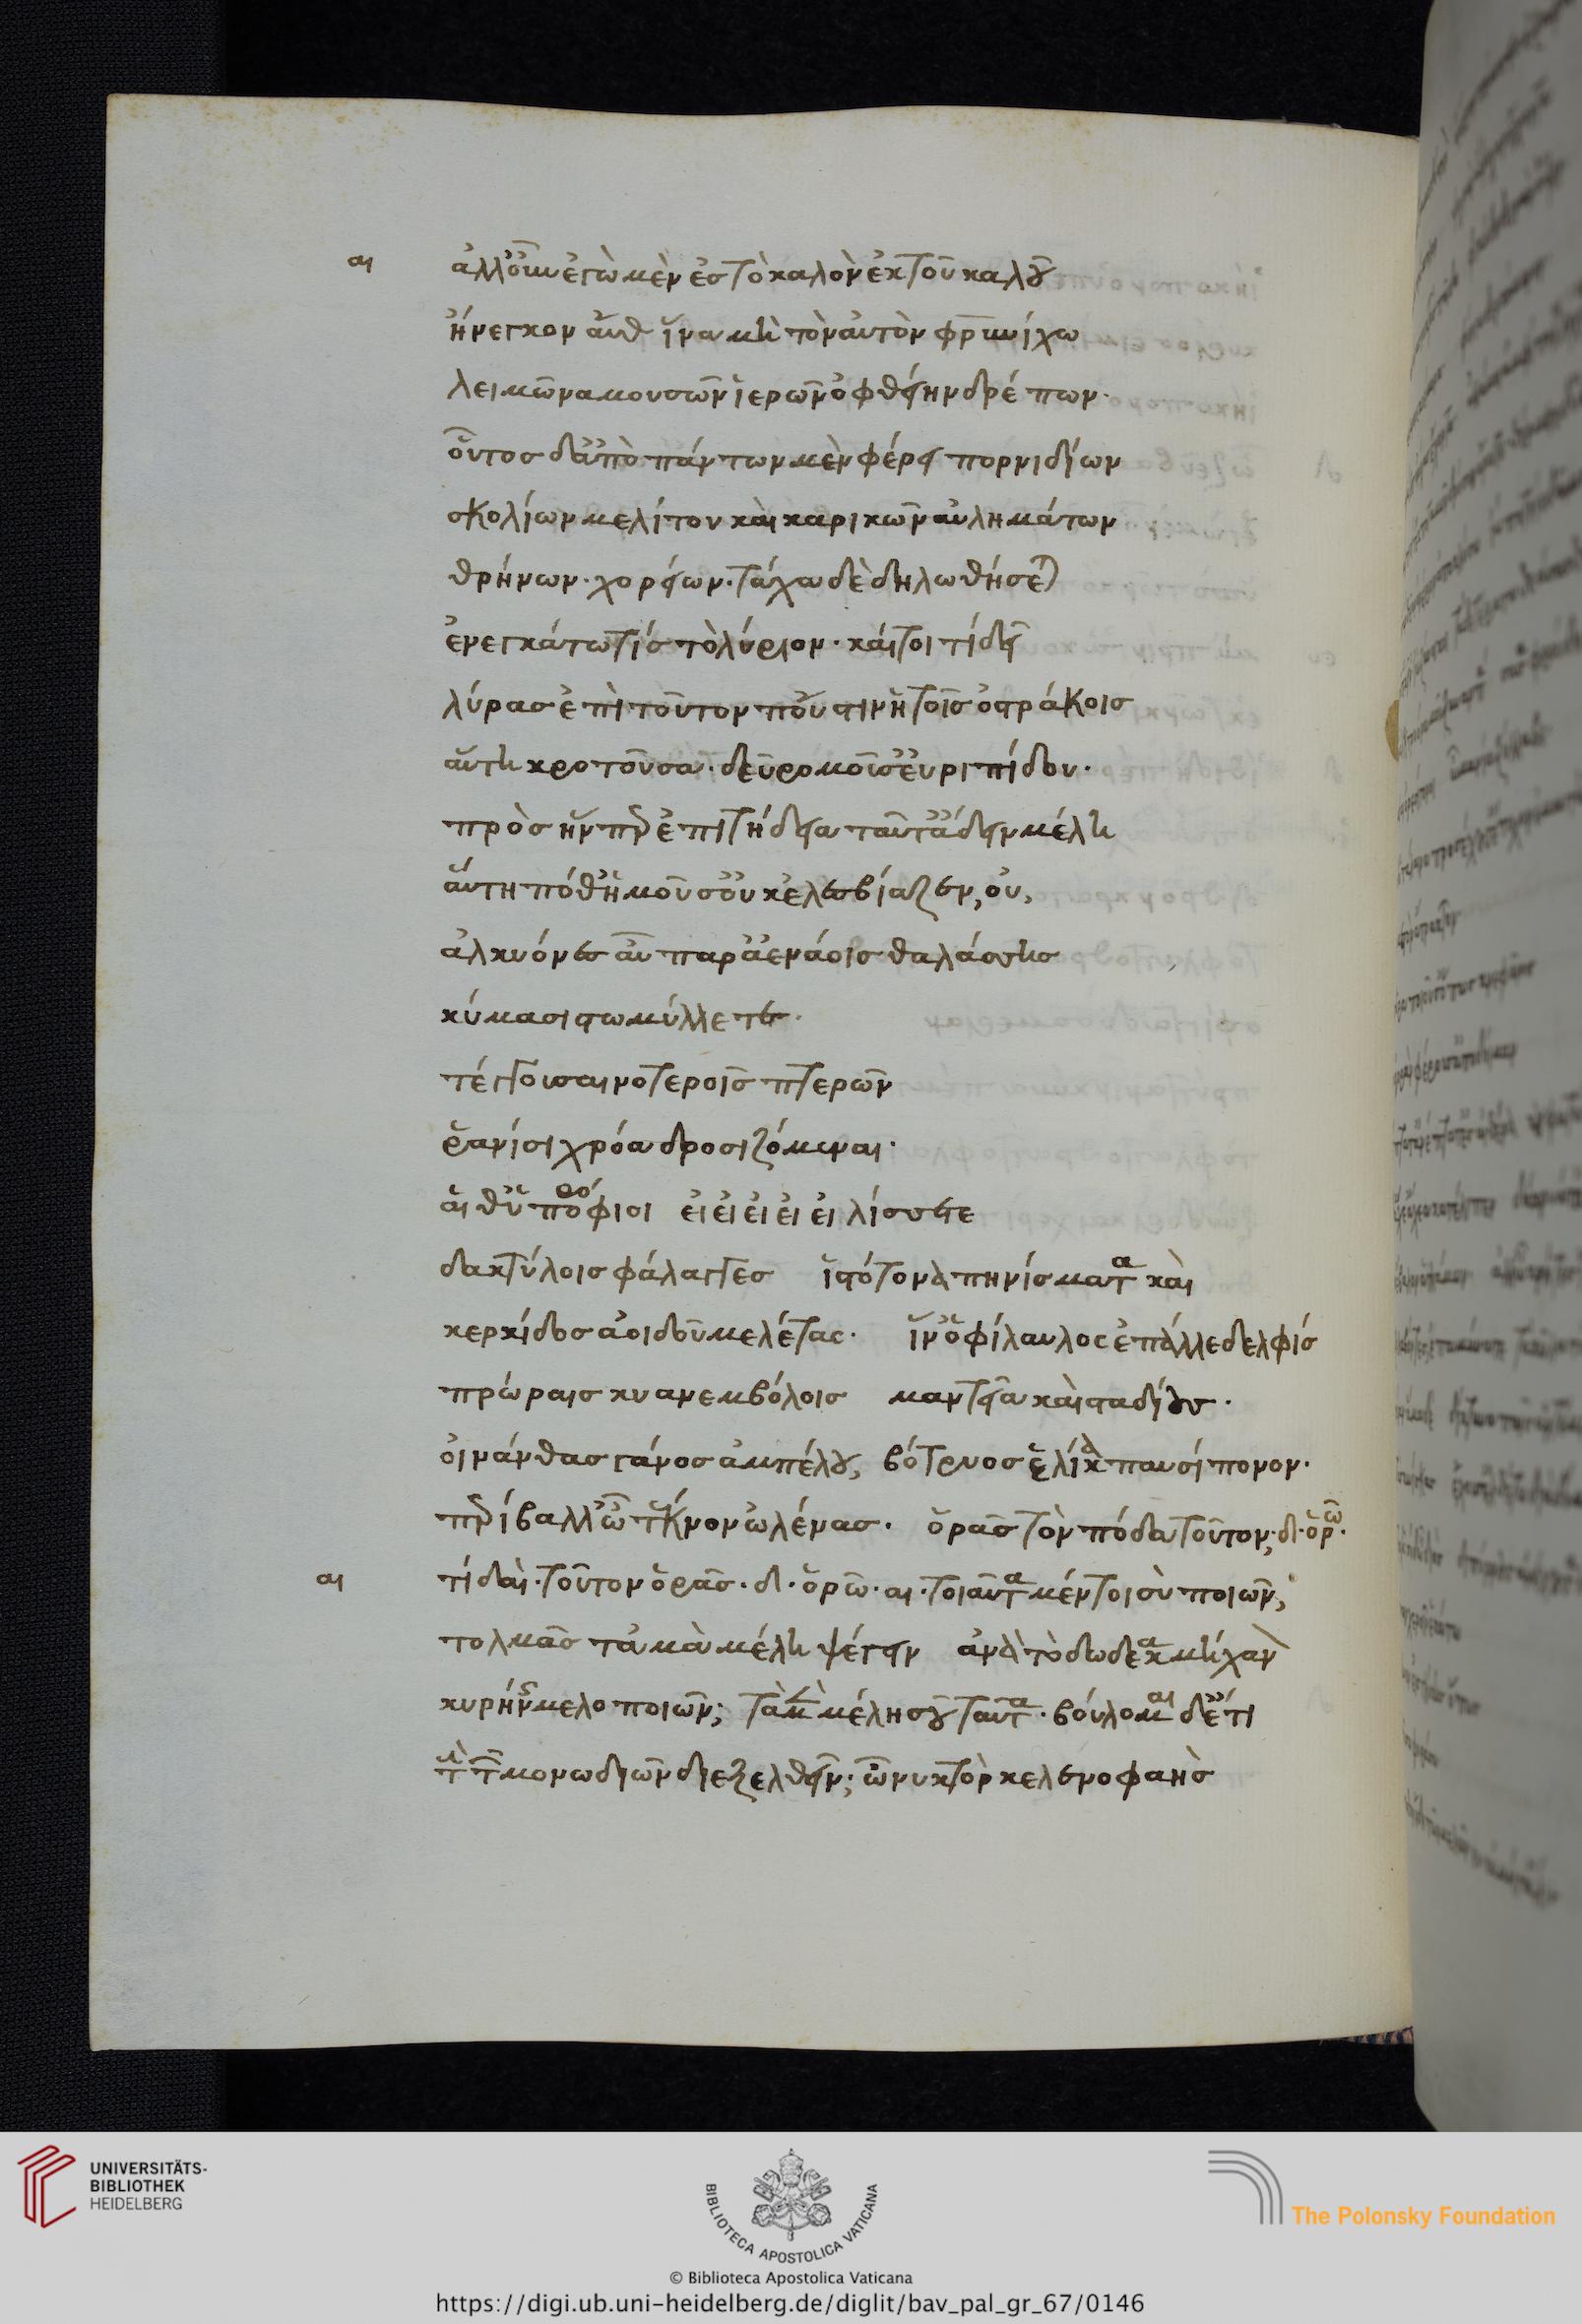 αι ἀλλ' οὖν ἐγὼ μὲν ἐς τὸ καλὸν ἐκ τοῦ καλοῦ
ἤνεγκον αὖθ' ἵνα μὴ τὸν αὐτὸν φρυνίχω
λειμῶνα μουσῶν ἱερῶν ὀφθείην δρέπων·
οὗτος δ' ἀπὸ πάντων μὲν φέρει πορνιδίων
σκολίων μελίτου καὶ καρικῶν αὐλημάτων
θρήνων· χορείων· τάχα δὲ δηλωθήσεται
ἐνεγκάτω τίς τὸ λύριον· καίτοι τί δεῖ
λύρας ἐπὶ τοῦτον ποῦ 'στιν ἡ τοῖς ὀστράκοις
αὕτη κροτοῦσα· δεῦρο μοῦσ' εὐριπίδου·
πρὸς ἥνπερ ἐπιτήδεια ταῦτ' ἄδειν μέλη
αὕτη πόθ' ἡ μοῦσ' οὐκ ἐλεσβίαζεν, οὔ,
ἀλκυόνες αἳ παρ' ἀενάοις θαλάσσης
κύμασι στωμύλλετε·
τέγγουσαι νοτεροῖς πτερῶν
ῥανίσι χρόα δροσιζόμεναι·
αἵ θ' ὑπορόφιοι εἰ εἰ εἰ εἰ εἰ λίσσετε
δακτύλοις φάλαγγες ἱστότονα πηνίσματα καὶ
κερκίδος ἀοιδοῦ μελέτας· ἵν' ὁ φίλαυλος ἔπαλλε δελφὶς
πρώραις κυανεμβόλοις μαντεῖα καὶ σταδίους·
οἰνάνθας γάνος ἀμπέλου, βότρυος ἕλικα παυσίπονον·
περίβαλλ' ὦ τέκνον ὠλένας· ὁρᾷς τὸν πόδα τοῦτον; δι· ὁρῶ·
αι τί δαί· τοῦτον ὁρᾷς· δι· ὁρῶ· αι· τοιαῦτα μέντοι σὺ ποιῶν,
τολμᾷς τἀμὰ μέλη ψέγειν ἀνὰ τὸ δωδεκαμήχανον
κυρήνης μελοποιῶν; τὰ μὲν μέλη σοῦ ταῦτα· βούλομαι δ' ἔτι
τὸν τῶν μονωδιῶν διεξελθεῖν; ὦ νυκτὸς κελενοφαὴς
UNIVERSITÄTS-
BIBLIOTHEK
HEIDELBERG
BIBLIOTECA APOSTOLICA VATICANA
The Polonsky Foundation
© Biblioteca Apostolica Vaticana
https://digi.ub.uni-heidelberg.de/diglit/bav_pal_gr_67/0146